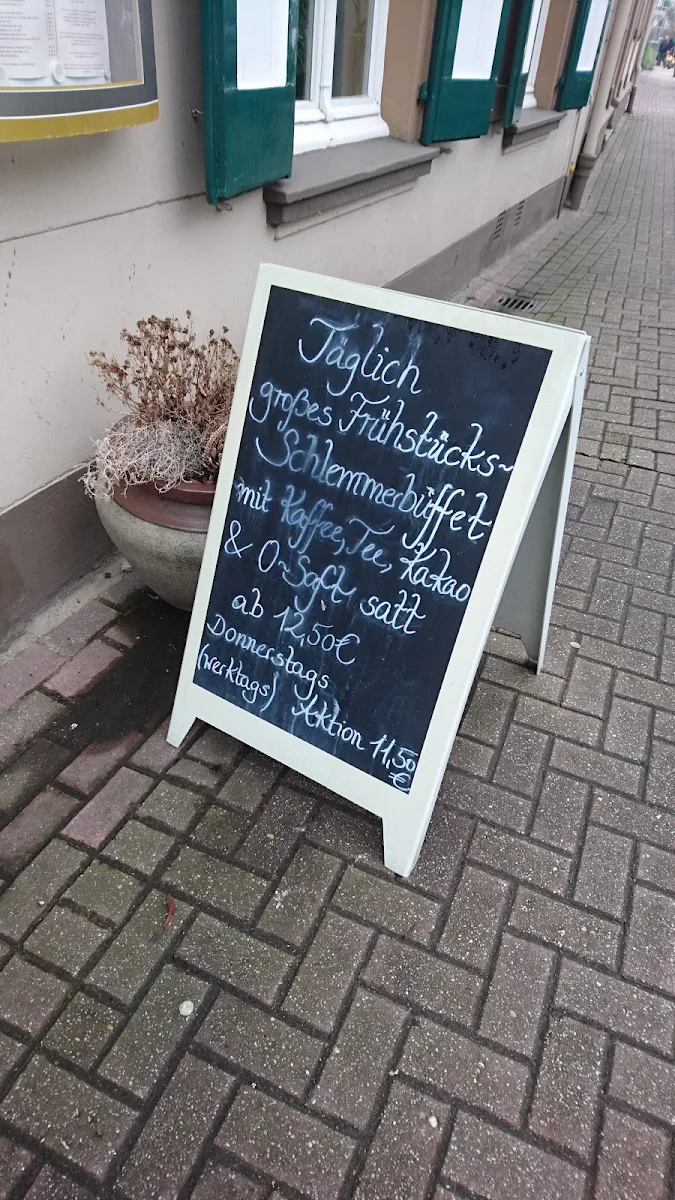 Täglich
großes Frühstücks~
Schlemmerbüffet
mit Kaffee, Tee, Kakao
& O~Saft satt
ab 12,50€
Donnerstags
(werktags) Aktion 11,50
€